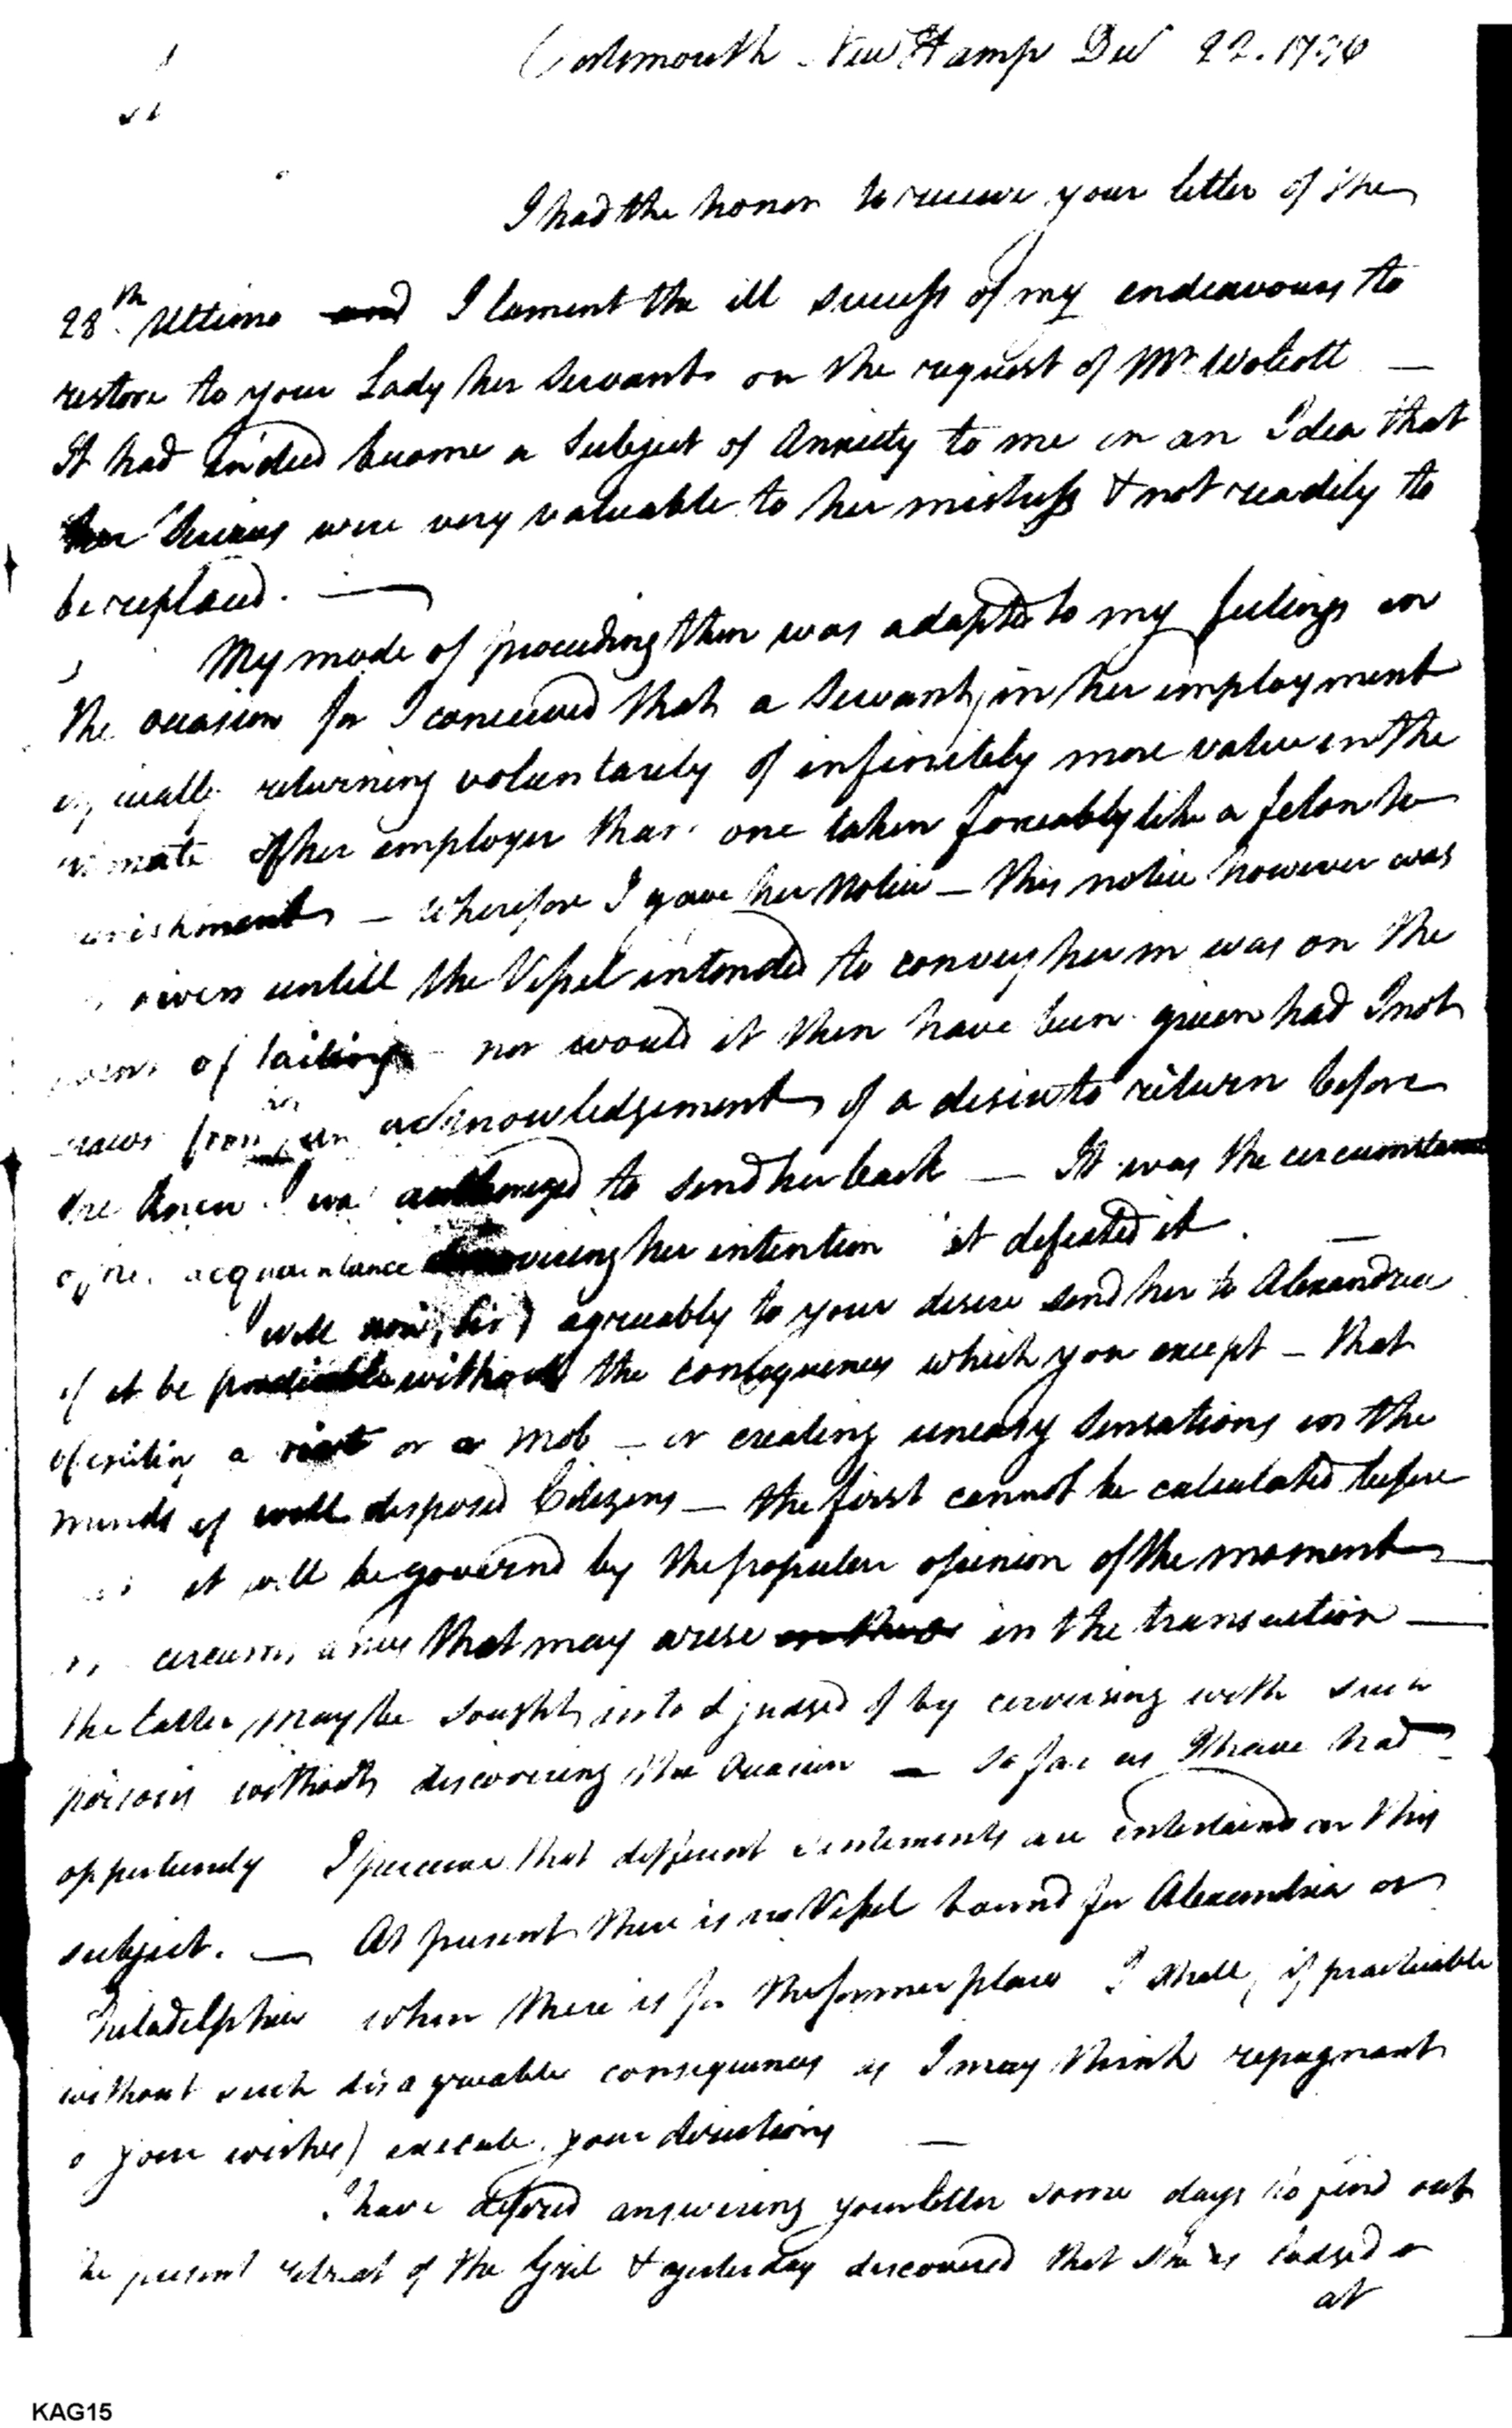 Portsmouth New Hamp Decr 22. 1796
I had the honor to receive your letter of the
28th Ultimo and I lament the ill success of my endeavours to
restore to your Lady her servant on the request of Mr Wolcott —
It had indeed become a subject of Anxiety to me on an Idea that
her services were very valuable to her mistress & not readily to
be replaced. —
My mode of proceeding then was adapted to my feelings on
the occasion for I conceived that a servant, in her employment
especially returning voluntarily of infinitely more value in the
estimate of her employer than one taken forceably like a felon to
punishment — wherefore I gave her Notice — this notice however was
given untill the Vessel intended to convey her in was on the
of sailing — nor would it then have been given had I not
drawn from her an acknowledgement of a desire to return before
she knew I was authorized to send her back — It was the circumstance
of her acquaintance discovering her intention that defeated it. —
I will now, Sir) agreeably to your desire send her to Alexandria
if it be practicable without the consequences which you except — that
of exciting a riot or a mob — or creating uneasy sensations in the
minds of well disposed Citizens — the first cannot be calculated before
it will be governd by the popular opinion of the moment —
or circumstances that may arise in the transaction —
the latter may be sought into & judged of by conversing with such
persons without discovering the occasion — so far as I have had
opportunity I perceive that different sentiments are entertaind on this
subject. — At present there is no Vessel bound for Alexandria or
Philadelphia when there is for the former place I shall, if practicable
without such disagreeable consequences as I may think repugnant
to your wishes) execute your directions —
I have deferd answering your letter some days to find out
the present retreat of the Girl & yesterday discovered that she is lodged
at
KAG15